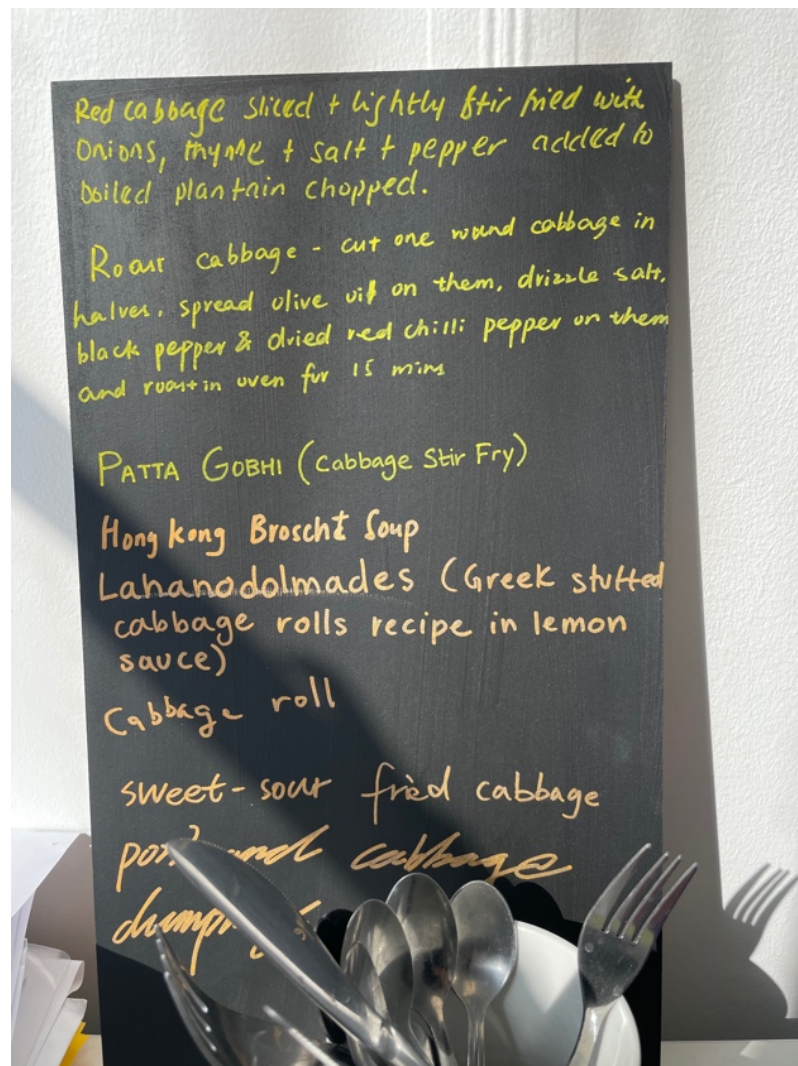 Red cabbage sliced + lightly stir fried with
Onions, thyme + salt + pepper added to
boiled plantain chopped.
Roast cabbage - cut one round cabbage in
halves, spread olive oil on them, drizzle salt,
black pepper & dried red chilli pepper on them
and roast in oven for 15 mins
PATTA GOBHI (Cabbage Stir Fry)
Hong kong Broscht Soup
Lahanodolmades (Greek stuffed
cabbage rolls recipe in lemon
sauce)
Cabbage roll
sweet-sour fried cabbage
and cabbage